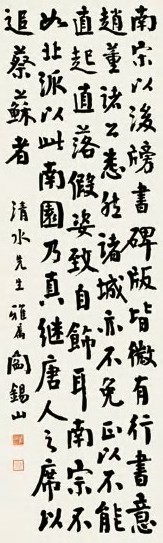 南宗以後牓書碑版皆微有行書意
趙董諸公悉然諸城亦不免正以不能
直起直落假姿致自飾耳南宗不
如北派以此南園乃真继唐人之席以
追蔡蘇者
清水先生雅属 阎錫山